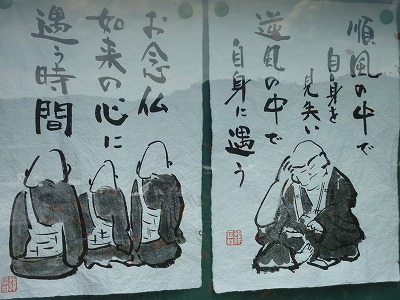 順風の中で
自身を
見失い
逆風の中で
自身に遇う
お念仏
如来の心に
遇う時間